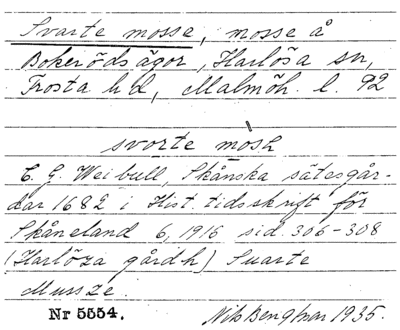 Svarte mosse, mosse å
Bokerödsägor, Harlösa sn,
Frosta hd, Malmöh. l. 92
svorte mosh
C. G. Weibull, Skånska sätesgår-
dar 1682 i Hist. tidsskrift för
Skåneland 6, 1916 sid. 306-308
(Harlösa gårdh) Suarte
Mussze.
Nr 5554. Nils Bengtsar 1935.